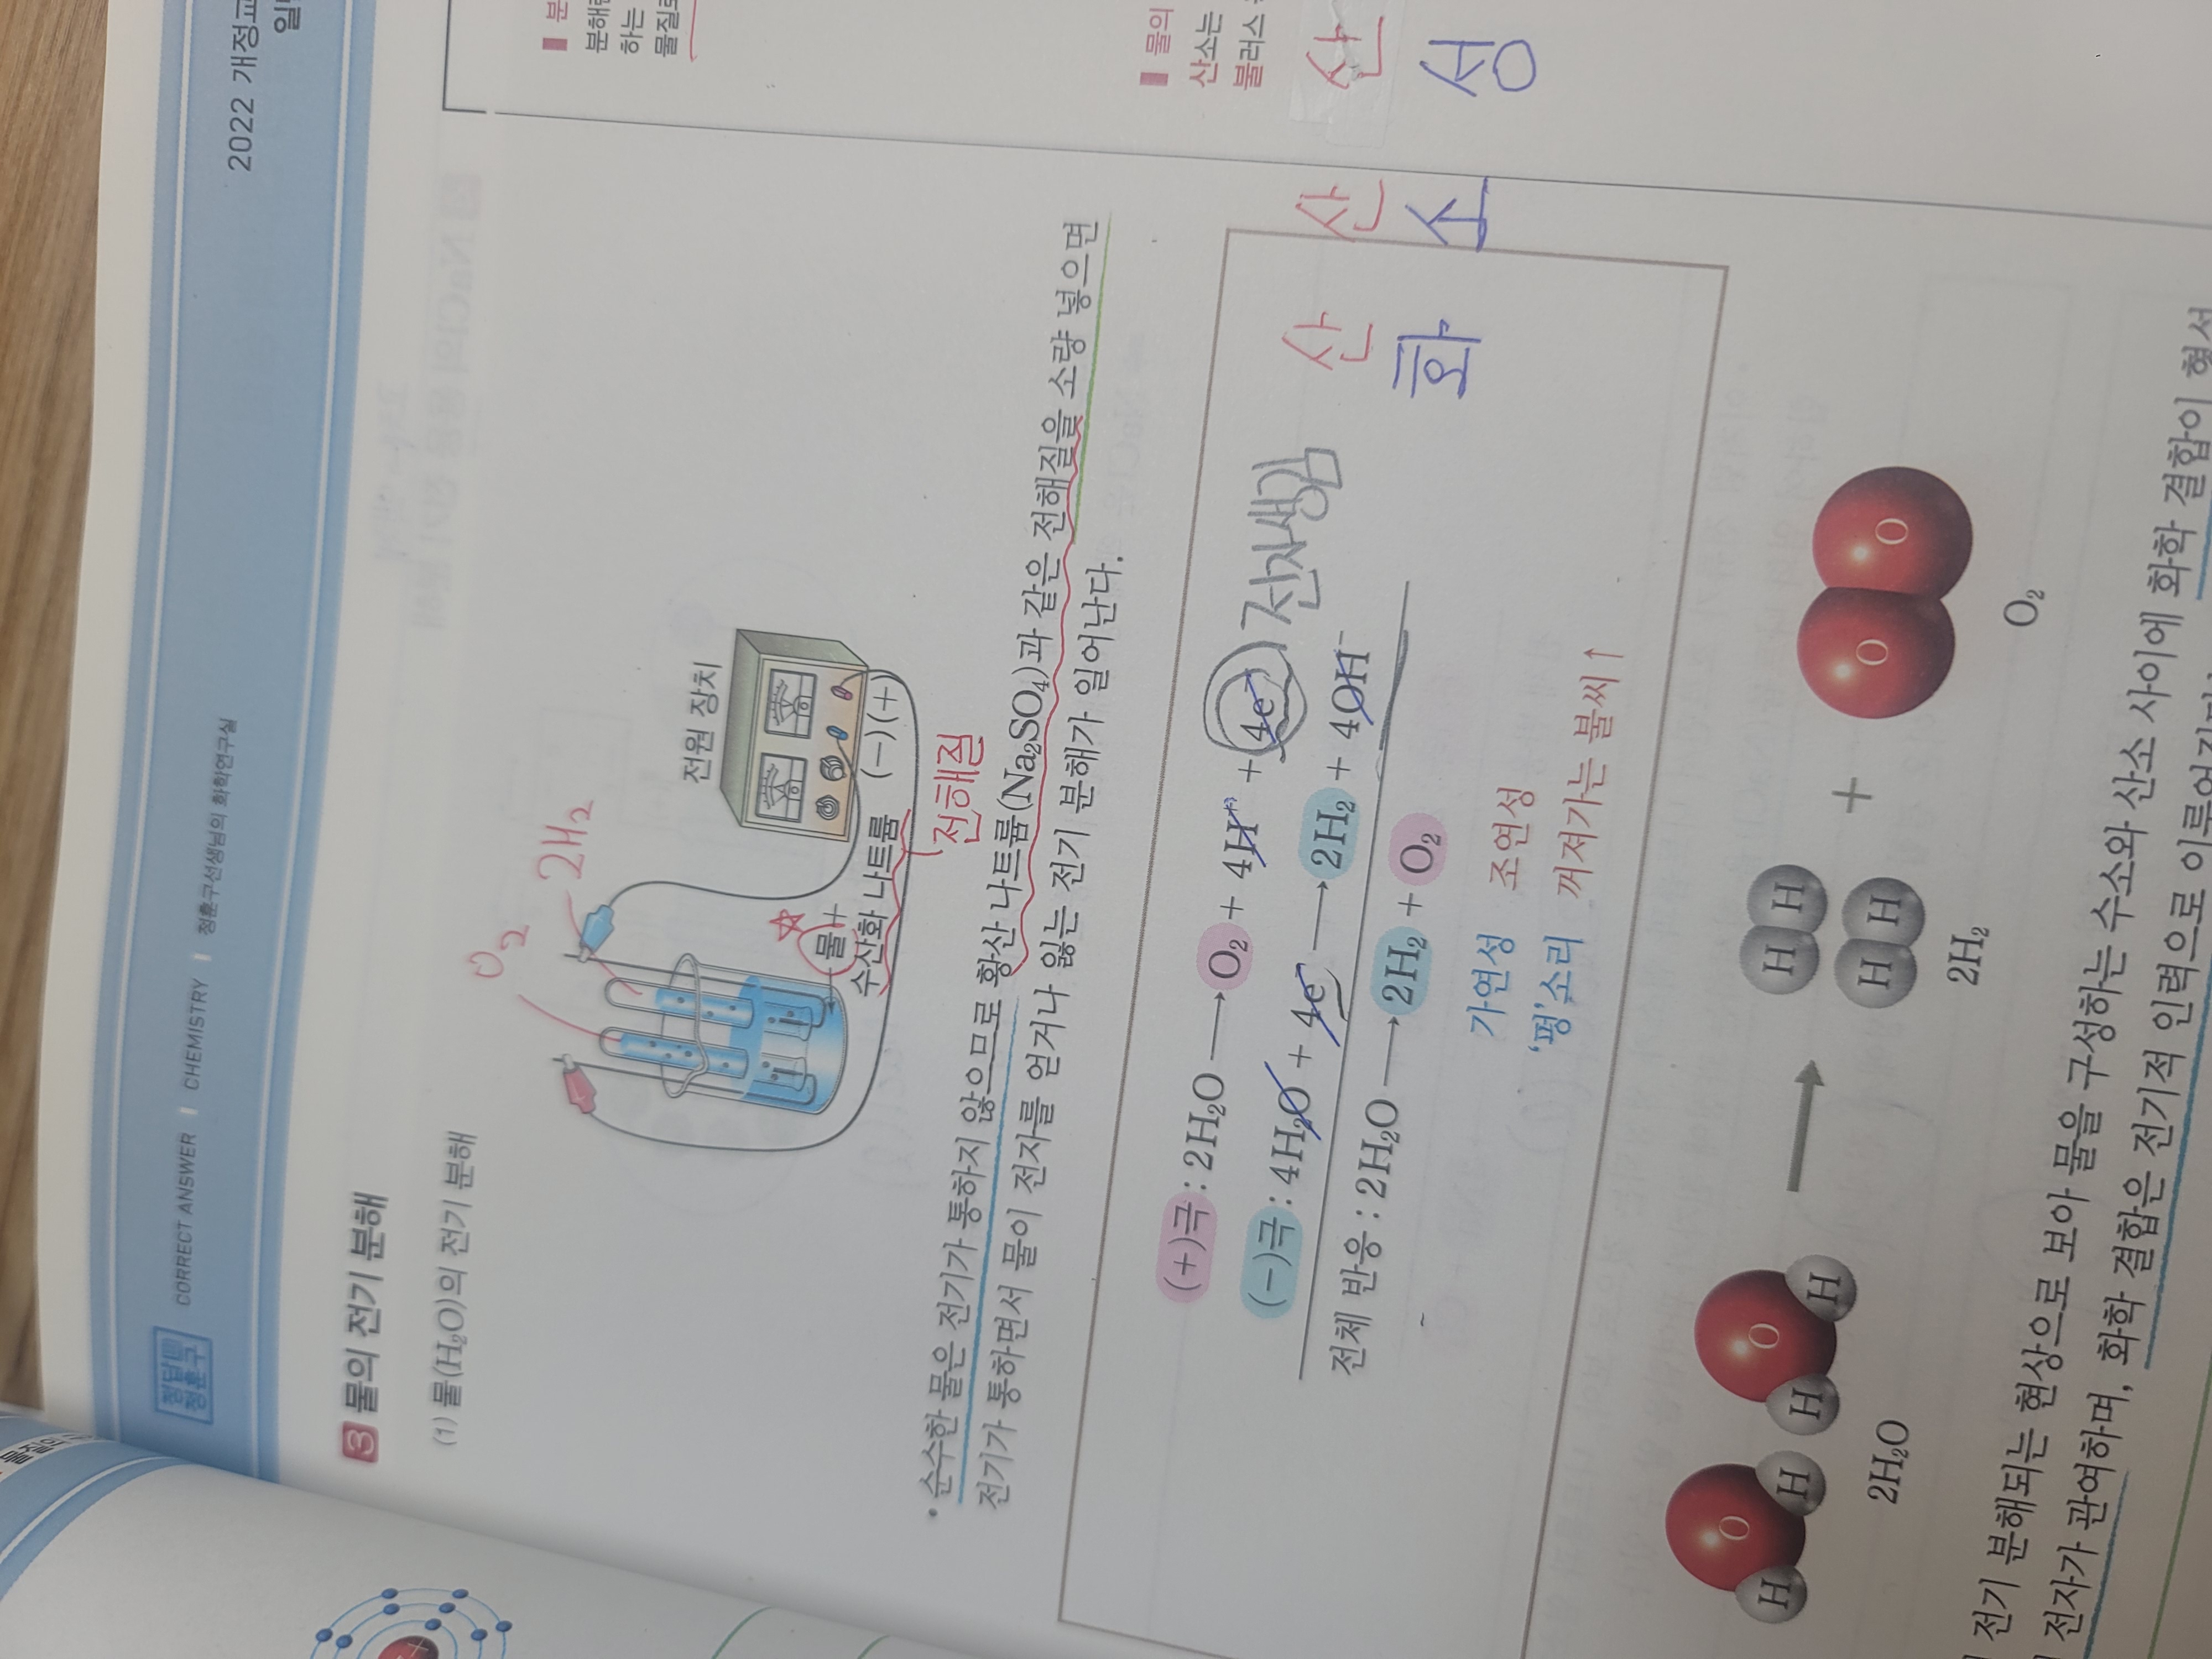 2022 개정교
일반
정답
정훈구
CORRECT ANSWER | CHEMISTRY | 정훈구선생님의 화학연구실
3 물의 전기 분해
(1) 물(H₂O)의 전기 분해
O₂
2H₂
전원 장치
(−)(+)
물+
수산화 나트륨
전해질
• 순수한 물은 전기가 통하지 않으므로 황산 나트륨(Na₂SO₄)과 같은 전해질을 소량 넣으면
전기가 통하면서 물이 전자를 얻거나 잃는 전기 분해가 일어난다.
(+)극 : 2H₂O → O₂ + 4H⁺ + 4e⁻ 전자생김
(−)극 : 4H₂O + 4e⁻ → 2H₂ + 4OH⁻
전체 반응 : 2H₂O → 2H₂ + O₂
가연성 조연성
'펑'소리 꺼져가는 불씨↑
산 산 산
화 소 성
H O H H O H H H H H O O
2H₂O
2H₂
+
O₂
전기 분해되는 현상으로 보아 물을 구성하는 수소와 산소 사이에 화학 결합이 형서
전자가 관여하며, 화학 결합은 전기적 인력으로 이루어지
분
분해
하는
물질로
물의
산소는
불러스